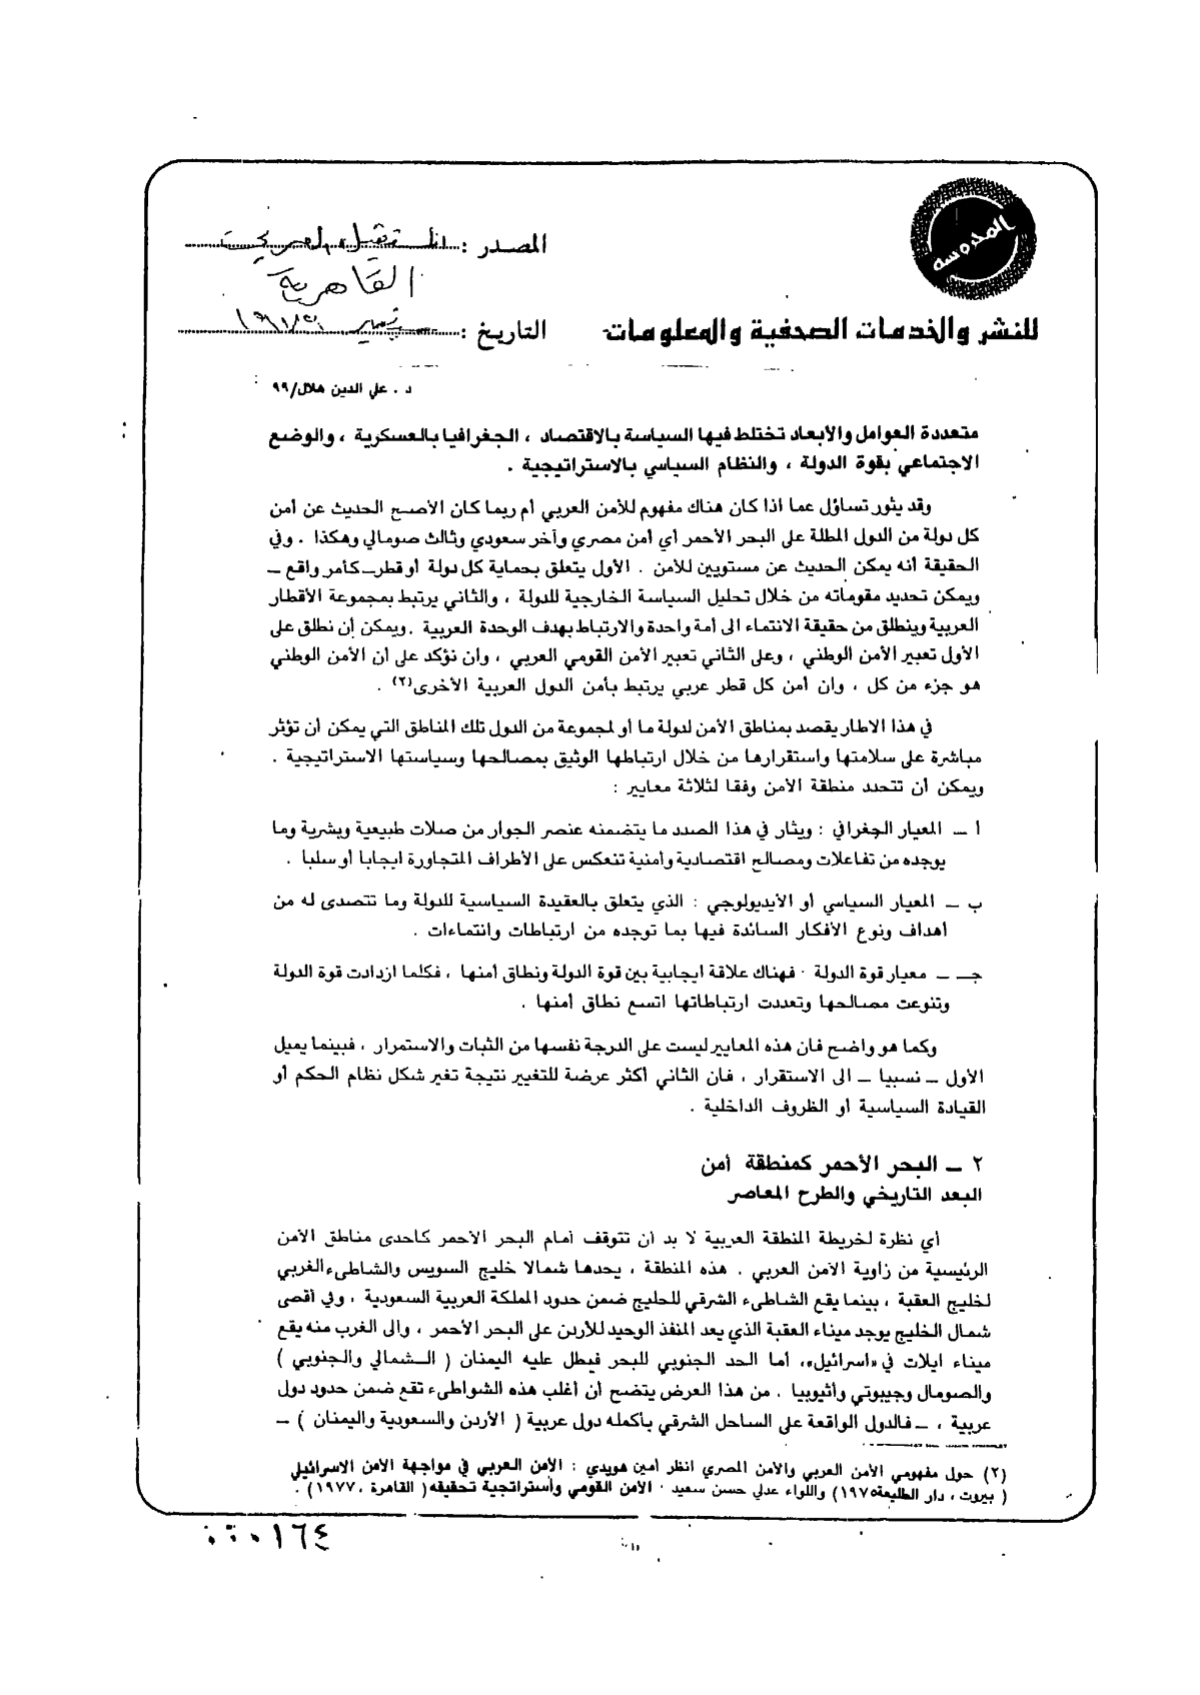 المحروسة
المصدر : المستقبل العربي
القاهرية
للنشر والخدمات الصحفية والمعلومات
التاريخ : سبتمبر
د . علي الدين هلال/٩٩
متعددة العوامل والأبعاد تختلط فيها السياسة بالاقتصاد ، الجغرافيا بالعسكرية ، والوضع
الاجتماعي بقوة الدولة ، والنظام السياسي بالاستراتيجية .
وقد يثور تساؤل عما اذا كان هناك مفهوم للأمن العربي أم ربما كان الأصح الحديث عن أمن
كل دولة من الدول المطلة على البحر الأحمر أي أمن مصري وآخر سعودي وثالث صومالي وهكذا . وفي
الحقيقة أنه يمكن الحديث عن مستويين للأمن . الأول يتعلق بحماية كل دولة أو قطر ــ كأمر واقع ــ
ويمكن تحديد مقوماته من خلال تحليل السياسة الخارجية للدولة ، والثاني يرتبط بمجموعة الأقطار
العربية وينطلق من حقيقة الانتماء الى أمة واحدة والارتباط بهدف الوحدة العربية . ويمكن أن نطلق على
الأول تعبير الأمن الوطني ، وعلى الثاني تعبير الأمن القومي العربي ، وان نؤكد على أن الأمن الوطني
هو جزء من كل ، وان أمن كل قطر عربي يرتبط بأمن الدول العربية الأخرى(٢) .
في هذا الاطار يقصد بمناطق الأمن لدولة ما أو لمجموعة من الدول تلك المناطق التي يمكن أن تؤثر
مباشرة على سلامتها واستقرارها من خلال ارتباطها الوثيق بمصالحها وسياستها الاستراتيجية .
ويمكن أن تتحدد منطقة الأمن وفقا لثلاثة معايير :
أ ــ المعيار الجغرافي : ويثار في هذا الصدد ما يتضمنه عنصر الجوار من صلات طبيعية وبشرية وما
يوجده من تفاعلات ومصالح اقتصادية وأمنية تنعكس على الأطراف المتجاورة ايجابا أو سلبا .
ب ــ المعيار السياسي أو الأيديولوجي : الذي يتعلق بالعقيدة السياسية للدولة وما تتصدى له من
أهداف ونوع الأفكار السائدة فيها بما توجده من ارتباطات وانتماءات .
جـ ــ معيار قوة الدولة . فهناك علاقة ايجابية بين قوة الدولة ونطاق أمنها ، فكلما ازدادت قوة الدولة
وتنوعت مصالحها وتعددت ارتباطاتها اتسع نطاق أمنها .
وكما هو واضح فان هذه المعايير ليست على الدرجة نفسها من الثبات والاستمرار ، فبينما يميل
الأول ــ نسبيا ــ الى الاستقرار ، فان الثاني أكثر عرضة للتغيير نتيجة تغير شكل نظام الحكم أو
القيادة السياسية أو الظروف الداخلية .
٢ ــ البحر الأحمر كمنطقة أمن
البعد التاريخي والطرح المعاصر
أي نظرة لخريطة المنطقة العربية لا بد أن تتوقف أمام البحر الأحمر كاحدى مناطق الأمن
الرئيسية من زاوية الأمن العربي . هذه المنطقة ، يحدها شمالا خليج السويس والشاطىء الغربي
لخليج العقبة ، بينما يقع الشاطىء الشرقي للخليج ضمن حدود المملكة العربية السعودية ، وفي أقصى
شمال الخليج يوجد ميناء العقبة الذي يعد المنفذ الوحيد للأردن على البحر الأحمر ، والى الغرب منه يقع
ميناء ايلات في «اسرائيل»، أما الحد الجنوبي للبحر فيطل عليه اليمنان ( الشمالي والجنوبي )
والصومال وجيبوتي وأثيوبيا . من هذا العرض يتضح أن أغلب هذه الشواطىء تقع ضمن حدود دول
عربية ، ــ فالدول الواقعة على الساحل الشرقي بأكمله دول عربية ( الأردن والسعودية واليمنان ) ــ
(٢) حول مفهومي الأمن العربي والأمن المصري انظر أمين هويدي : الأمن العربي في مواجهة الأمن الاسرائيلي
( بيروت ، دار الطليعة ١٩٧٥) واللواء عدلي حسن سعيد . الأمن القومي وأستراتجية تحقيقه ( القاهرة ، ١٩٧٧ ) .
٥٥٠١٦٤